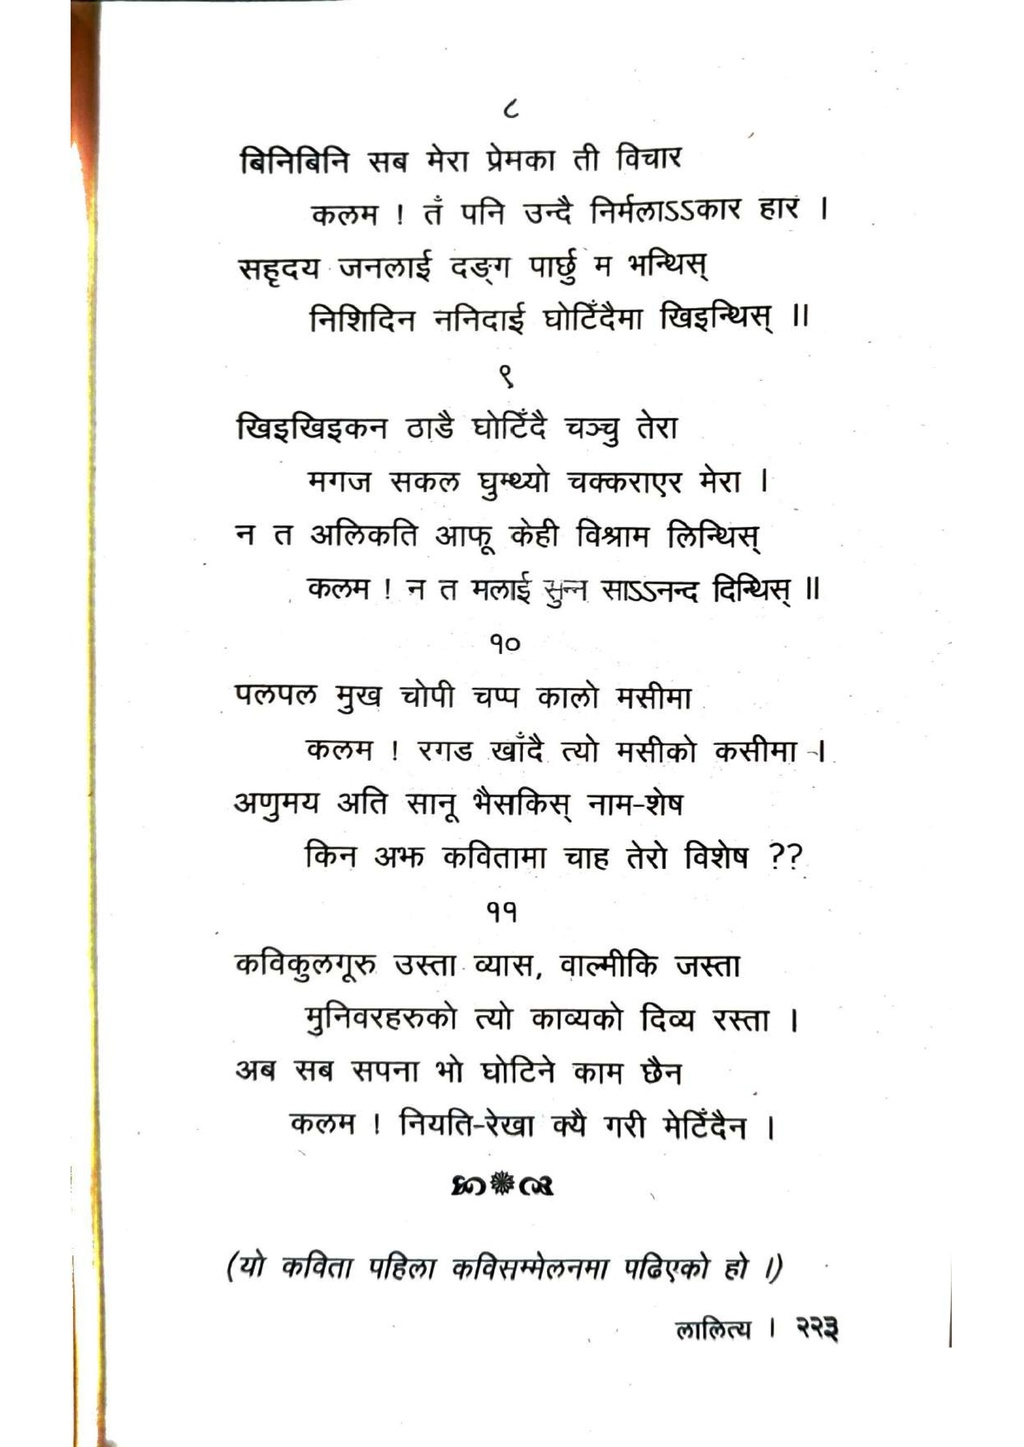 ८
बिनिबिनि सब मेरा प्रेमका ती विचार
कलम ! तँ पनि उन्दै निर्मलाऽऽकार हार ।
सहृदय जनलाई दङ्ग पार्छु म भन्थिस्
निशिदिन ननिदाई घोटिँदैमा खिइन्थिस् ॥
९
खिइखिइकन ठाडै घोटिँदै चञ्चु तेरा
मगज सकल घुम्थ्यो चक्कराएर मेरा ।
न त अलिकति आफू केही विश्राम लिन्थिस्
कलम ! न त मलाई सुन्न साऽऽनन्द दिन्थिस् ॥
१०
पलपल मुख चोपी चप्प कालो मसीमा
कलम ! रगड खाँदै त्यो मसीको कसीमा ।
अणुमय अति सानू भैसकिस् नाम-शेष
किन अझ कवितामा चाह तेरो विशेष ??
११
कविकुलगूरु उस्ता व्यास, वाल्मीकि जस्ता
मुनिवरहरुको त्यो काव्यको दिव्य रस्ता ।
अब सब सपना भो घोटिने काम छैन
कलम ! नियति-रेखा क्यै गरी मेटिँदैन ।
(यो कविता पहिला कविसम्मेलनमा पढिएको हो ।)
लालित्य । २२३